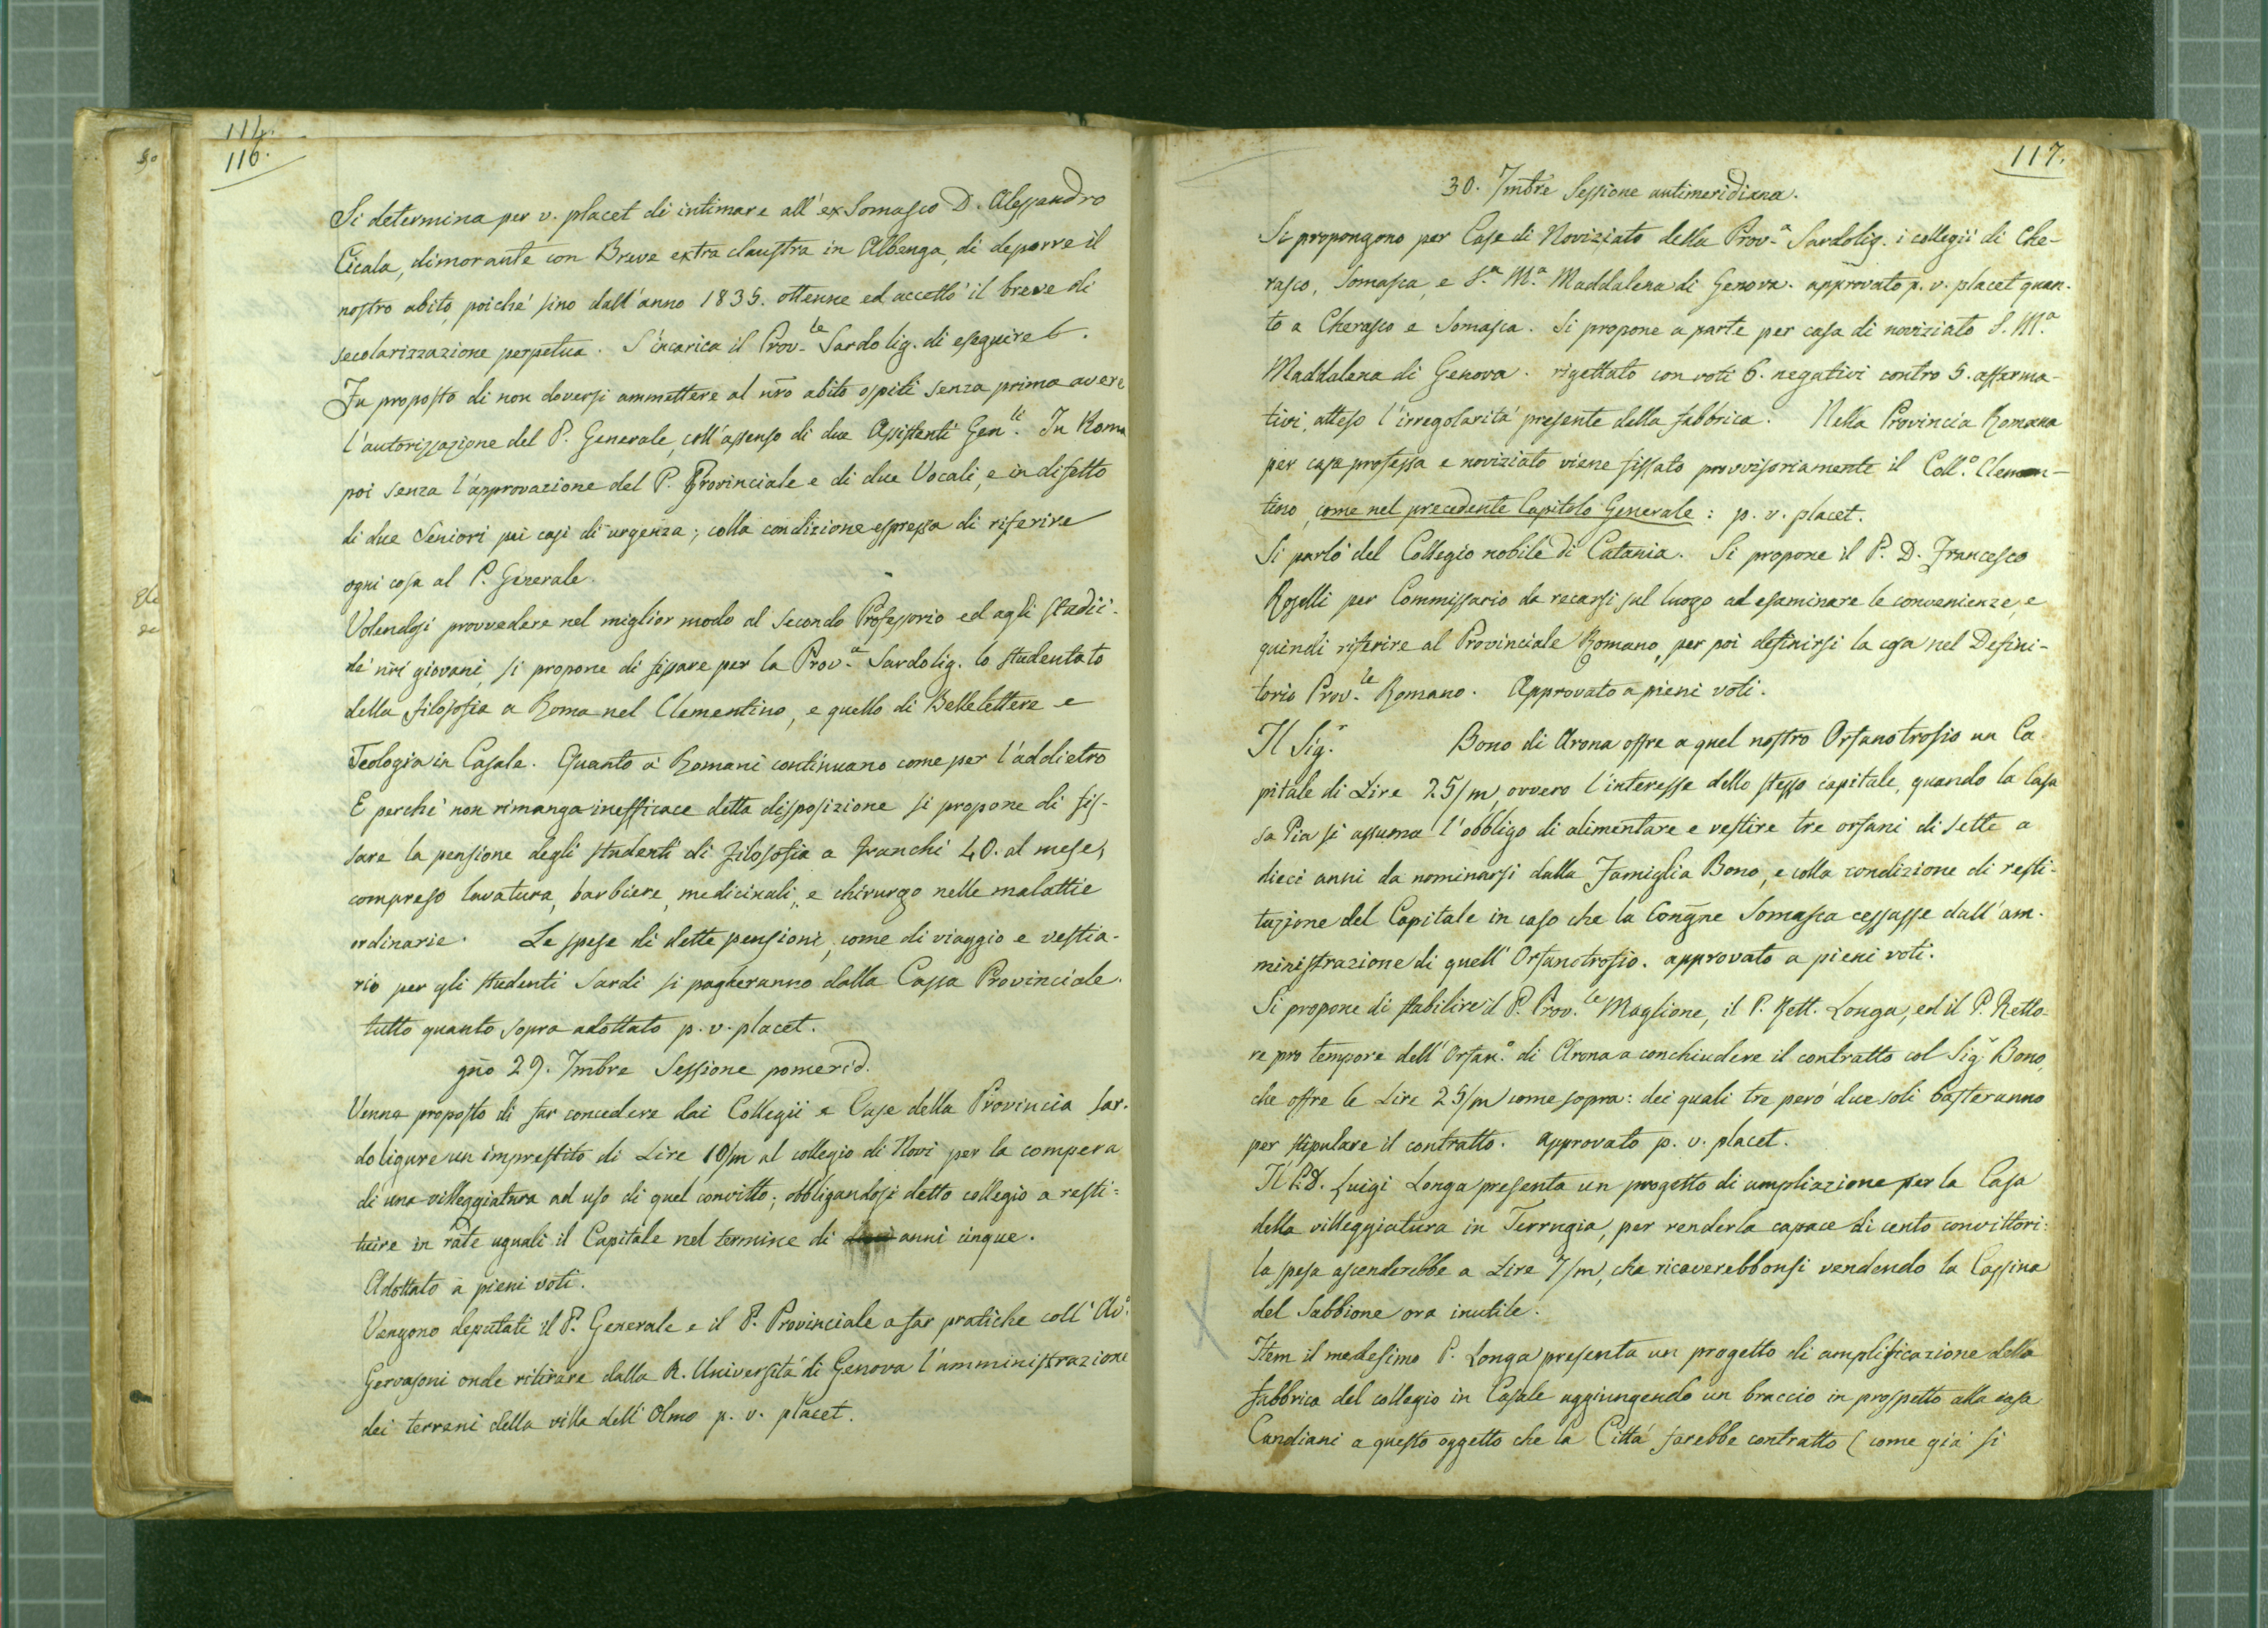 114.
116.
Si determina per v. placet di intimare all' ex Somasco D. Alessandro
Cicala, dimorante con Breve extra claustra in Albenga, di deporre il
nostro abito, poiché sino dall' anno 1835. ottenne ed accettò il breve di
secolarizzazione perpetua. S'incarica il Prov.le Sardo lig. di eseguire
Fu proposto di non doversi ammettere al nr̃o abito ospiti senza prima avere
l'autorizzazione del P. Generale, coll' assenso di due Assistenti Gen.li. In Roma
poi senza l'approvazione del P. Provinciale e di due Vocali, e in difetto
di due Seniori pei casi di urgenza; colla condizione espressa di riferire
ogni cosa al P. Generale.
Volendosi provvedere nel miglior modo al secondo Professorio ed agli studii
de' nr̃i giovani, si propone di fissare per la Prov.a Sardolig. lo studentato
della filosofia a Roma nel Clementino, e quello di Bellelettere e
Teologia in Casale. Quanto a' Romani continuano come per l'addietro
E perché non rimanga inefficace detta disposizione si propone di fis-
sare la pensione degli studenti di filosofia a franchi 40. al mese,
compreso lavatura, barbiere, medicinali, e chirurgo nelle malattie
ordinarie. Le spese di dette pensioni, come di viaggio e vestia-
rio per gli studenti Sardi si pagheranno dalla Cassa Provinciale.
tutto quanto sopra adottato p. v. placet.
gño 29. 7mbre Sessione pomerid.
Venne proposto di far concedere dai Collegii e Case della Provincia Sar-
do ligure un imprestito di Lire 10/m al collegio di Novi per la compera
di una villeggiatura ad uso di quel convitto; obbligandosi detto collegio a resti=
tuire in rate uguali il Capitale nel termine di anni cinque.
Adottato a pieni voti.
Vengono deputati il P. Generale e il P. Provinciale a far pratiche coll' Av.o
Gervasoni onde ritirare dalla R. Università di Genova l'amministrazione
dei terreni della villa dell' Olmo p. v. placet.
117.
30. 7mbre Sessione antimeridiana.
Si propongono per Case di Noviziato della Prov.a Sardolig. i collegii di Che-
rasco, Somasca, e S.a M.a Maddalena di Genova. approvato p. v. placet quan-
to a Cherasco e Somasca. Si propone a parte per casa di noviziato S. M.a
Maddalena di Genova. rigettato con voti 6. negativi contro 5. afferma-
tivi, atteso l'irregolarità presente della fabbrica. Nella Provincia Romana
per casa professa e noviziato viene fissato provvisoriamente il Coll.o Clemen-
tino, come nel precedente Capitolo Generale: p. v. placet.
Si parlò del Collegio nobile di Catania. Si propone il P. D. Francesco
Roselli per Commissario da recarsi sul luogo ad esaminare le convenienze, e
quindi riferire al Provinciale Romano, per poi definirsi la cosa nel Defini-
torio Prov.le Romano. Approvato a pieni voti.
Il Sig.r Bono di Arona offre a quel nostro Orfanotrofio un Ca
pitale di Lire 25/m, ovvero l'interesse dello stesso capitale, quando la Casa
sa Pia si assuma l'obbligo di alimentare e vestire tre orfani di sette a
dieci anni da nominarsi dalla Famiglia Bono, e colla condizione di resti-
tuzione del Capitale in caso che la Congñe Somasca cessasse dall' am-
ministrazione di quell' Orfanotrofio. approvato a pieni voti.
Si propone di stabilire il P. Prov.le Maglione, il P. Rett. Longa, ed il P. Retto-
re pro tempore dell' Orfan.o di Arona a conchiudere il contratto col Sig.r Bono,
che offre le Lire 25/m come sopra: dei quali tre però due soli basteranno
per stipulare il contratto. Approvato p. v. placet.
Il P. D. Luigi Longa presenta un progetto di ampliazione per la Casa
della villeggiatura in Terrugia, per renderla capace di cento convittori:
la spesa ascenderebbe a Lire 7/m, che ricaverebbonsi vendendo la Cassina
del Sabbione ora inutile.
Item il medesimo P. Longa presenta un progetto di amplificazione della
fabbrica del collegio in Casale aggiungendo un braccio in prospetto alla casa
Candiani a questo oggetto che la Città farebbe contratto (come già si